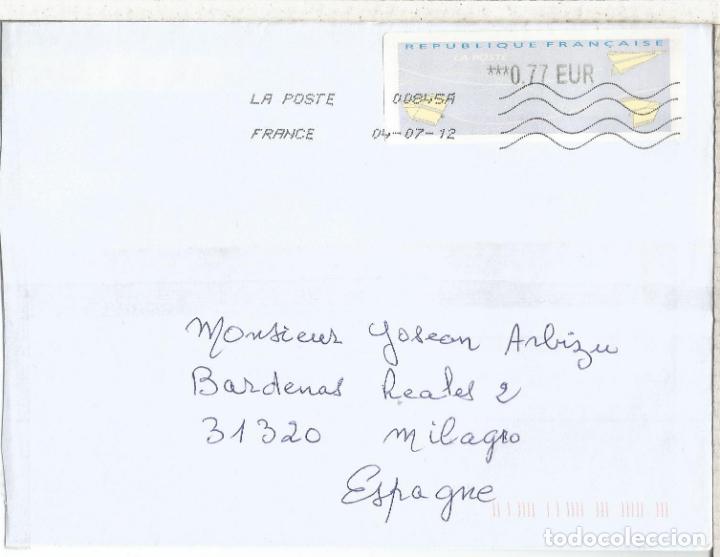 REPUBLIQUE FRANÇAISE
LA POSTE
***0,77 EUR
LA POSTE 00845A
FRANCE 04-07-12
Monsieur Josean Arbizu
Bardenas Reales 2
31320 Milagro
Espagne
todocoleccion